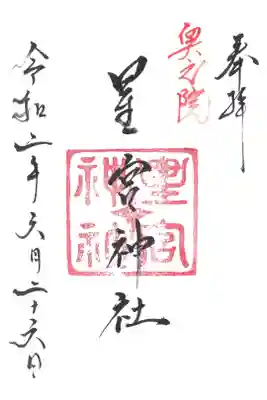 奉拝
奥之院
星宮神社
令和二年六月二十六日